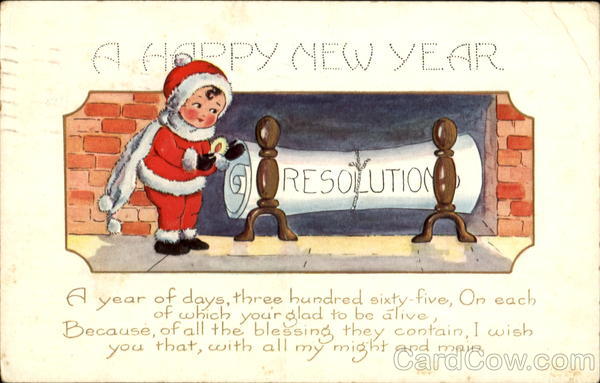 A HAPPY NEW YEAR
RESOLUTIONS
A year of days, three hundred sixty-five, On each
of which you'r glad to be alive,
Because, of all the blessing they contain, I wish
you that, with all my might and main
CardCow.com